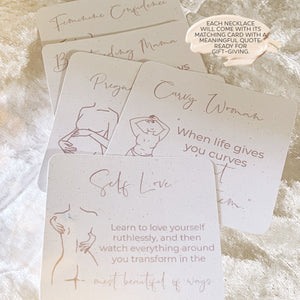 EACH NECKLACE
WILL COME WITH ITS
MATCHING CARD WITH A
MEANINGFUL QUOTE
READY FOR
GIFT-GIVING.
Feminine Confidence
Curvy Woman
"When life gives
you curves
Self Love
Learn to love yourself
ruthlessly, and then
watch everything around
you transform in the
most beautiful of ways.